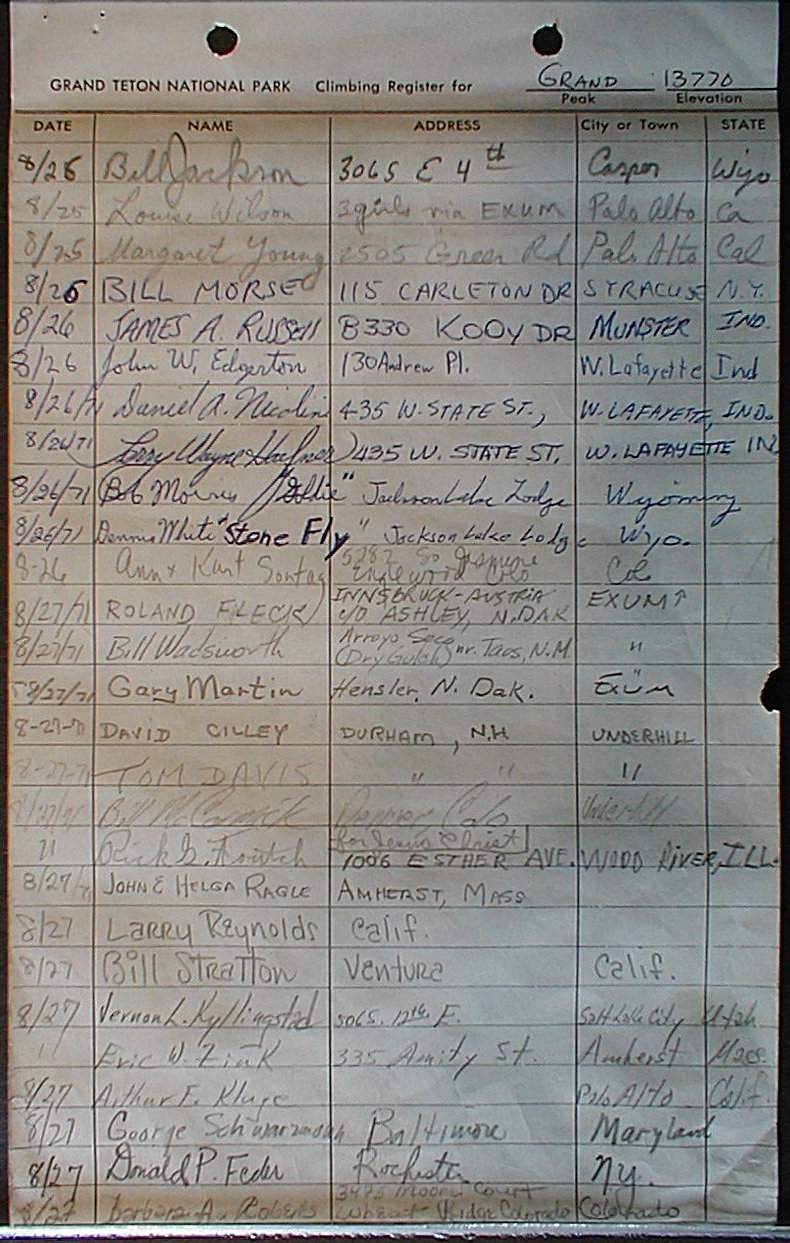 GRAND TETON NATIONAL PARK Climbing Register for GRAND 13770
Peak Elevation
DATE NAME ADDRESS City or Town STATE
8/26 Bill Jackson 3065 E 4th Casper Wyo
8/25 Louise Wilson 3 girls via EXUM Palo Alto Ca
8/25 Margaret Young 2505 Green Rd Palo Alto Cal
8/26 BILL MORSE 115 CARLETON DR SYRACUSE N.Y.
8/26 JAMES A. RUSSELL 8330 KOOY DR MUNSTER IND.
8/26 John W. Edgerton 130 Andrew Pl. W. Lafayette Ind
8/26/71 Daniel A. 435 W. STATE ST., W. LAFAYETTE, IND.
8/26/71 Larry Wayne 435 W. STATE ST. W. LAFAYETTE IN
8/26/71 Bob Morris "Goldie" Jackson Lake Lodge Wyoming
8/26/71 Dennis White "Stone Fly" Jackson Lake Lodge Wyo.
8-26 Ann & Kurt Sontag 5282 So
Englewood Colo Col
INNSBRUCK-AUSTRIA
8/27/71 ROLAND FLECK c/o ASHLEY, N.DAK EXUM↑
8/27/71 Bill Wadsworth Arroyo Seco
(Dry Gulch) nr. Taos, N.M. "
8/27/71 Gary Martin Hensler, N. Dak. Exum
8-27-71 DAVID CILLEY DURHAM, N.H. UNDERHILL
8-27-71 TOM DAVIS " " "
8/27/71 Bill McCormick Denver Colo Underhill
for Jesus Christ
" Rick G. 1006 ESTHER AVE. WOOD RIVER, ILL.
8/27/71 JOHN & HELGA RAGLE AMHERST, MASS
8/27 LARRY REYNOLDS Calif.
8/27 Bill Stratton Ventura Calif.
8/27 Vernon L. Kyllingstad 306 S. 12th E. Salt Lake City Utah
" Eric W. Fink 335 Amity St. Amherst Mass.
8/27 Arthur F. Kluge Palo Alto Calif.
8/27 George Schwarzmann Baltimore Maryland
8/27 Donald P. Feder Rochester N.Y.
3475 Moore Court
8/27 Barbara A. Roberts Wheat Ridge Colorado Colorado